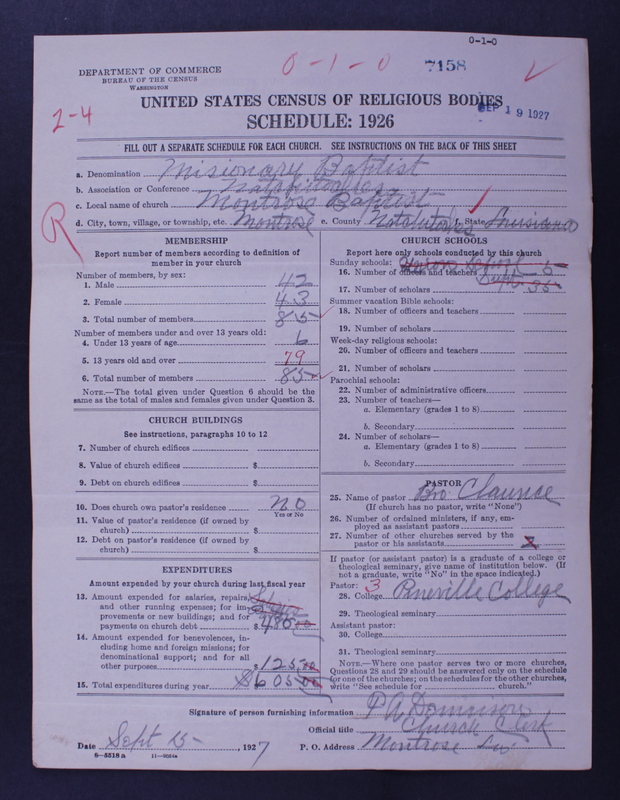 0-1-0
DEPARTMENT OF COMMERCE
BUREAU OF THE CENSUS
WASHINGTON
0-1-0
7158
2-4
UNITED STATES CENSUS OF RELIGIOUS BODIES
SEP 19 1927
SCHEDULE: 1926
FILL OUT A SEPARATE SCHEDULE FOR EACH CHURCH. SEE INSTRUCTIONS ON THE BACK OF THIS SHEET
a. Denomination Misionary Baptist
b. Association or Conference
c. Local name of church Montrose Baptist
d. City, town, village, or township, etc. Montrose e. County f. State Louisiana
R
MEMBERSHIP
Report number of members according to definition of
member in your church
Number of members, by sex:
1. Male 42
2. Female 43
3. Total number of members 85
Number of members under and over 13 years old:
4. Under 13 years of age 6
5. 13 years old and over 79
6. Total number of members 85
NOTE.—The total given under Question 6 should be the
same as the total of males and females given under Question 3.
CHURCH BUILDINGS
See instructions, paragraphs 10 to 12
7. Number of church edifices
8. Value of church edifices $
9. Debt on church edifices $
10. Does church own pastor's residence No
Yes or No
11. Value of pastor's residence (if owned by
church) $
12. Debt on pastor's residence (if owned by
church) $
EXPENDITURES
Amount expended by your church during last fiscal year
13. Amount expended for salaries, repairs,
and other running expenses; for im-
provements or new buildings; and for
payments on church debt $ 480 00
14. Amount expended for benevolences, in-
cluding home and foreign missions; for
denominational support; and for all
other purposes $ 125 00
15. Total expenditures during year $605 00
CHURCH SCHOOLS
Report here only schools conducted by this church
Sunday schools:
16. Number of officers and teachers 5
17. Number of scholars 35
Summer vacation Bible schools:
18. Number of officers and teachers
19. Number of scholars
Week-day religious schools:
20. Number of officers and teachers
21. Number of scholars
Parochial schools:
22. Number of administrative officers
23. Number of teachers—
a. Elementary (grades 1 to 8)
b. Secondary
24. Number of scholars—
a. Elementary (grades 1 to 8)
b. Secondary
PASTOR
25. Name of pastor Bro. Claunce
(If church has no pastor, write "None")
26. Number of ordained ministers, if any, em-
ployed as assistant pastors
27. Number of other churches served by the
pastor or his assistants
If pastor (or assistant pastor) is a graduate of a college or
theological seminary, give name of institution below. (If
not a graduate, write "No" in the space indicated.)
Pastor: 3
28. College Pineville College
29. Theological seminary
Assistant pastor:
30. College
31. Theological seminary
NOTE.—Where one pastor serves two or more churches,
Questions 28 and 29 should be answered only on the schedule
for one of the churches; on the schedules for the other churches,
write "See schedule for church."
Signature of person furnishing information P A
Official title Church Clerk
Date Sept 15, 1927 P. O. Address Montrose La
8-5518a 11-9084a